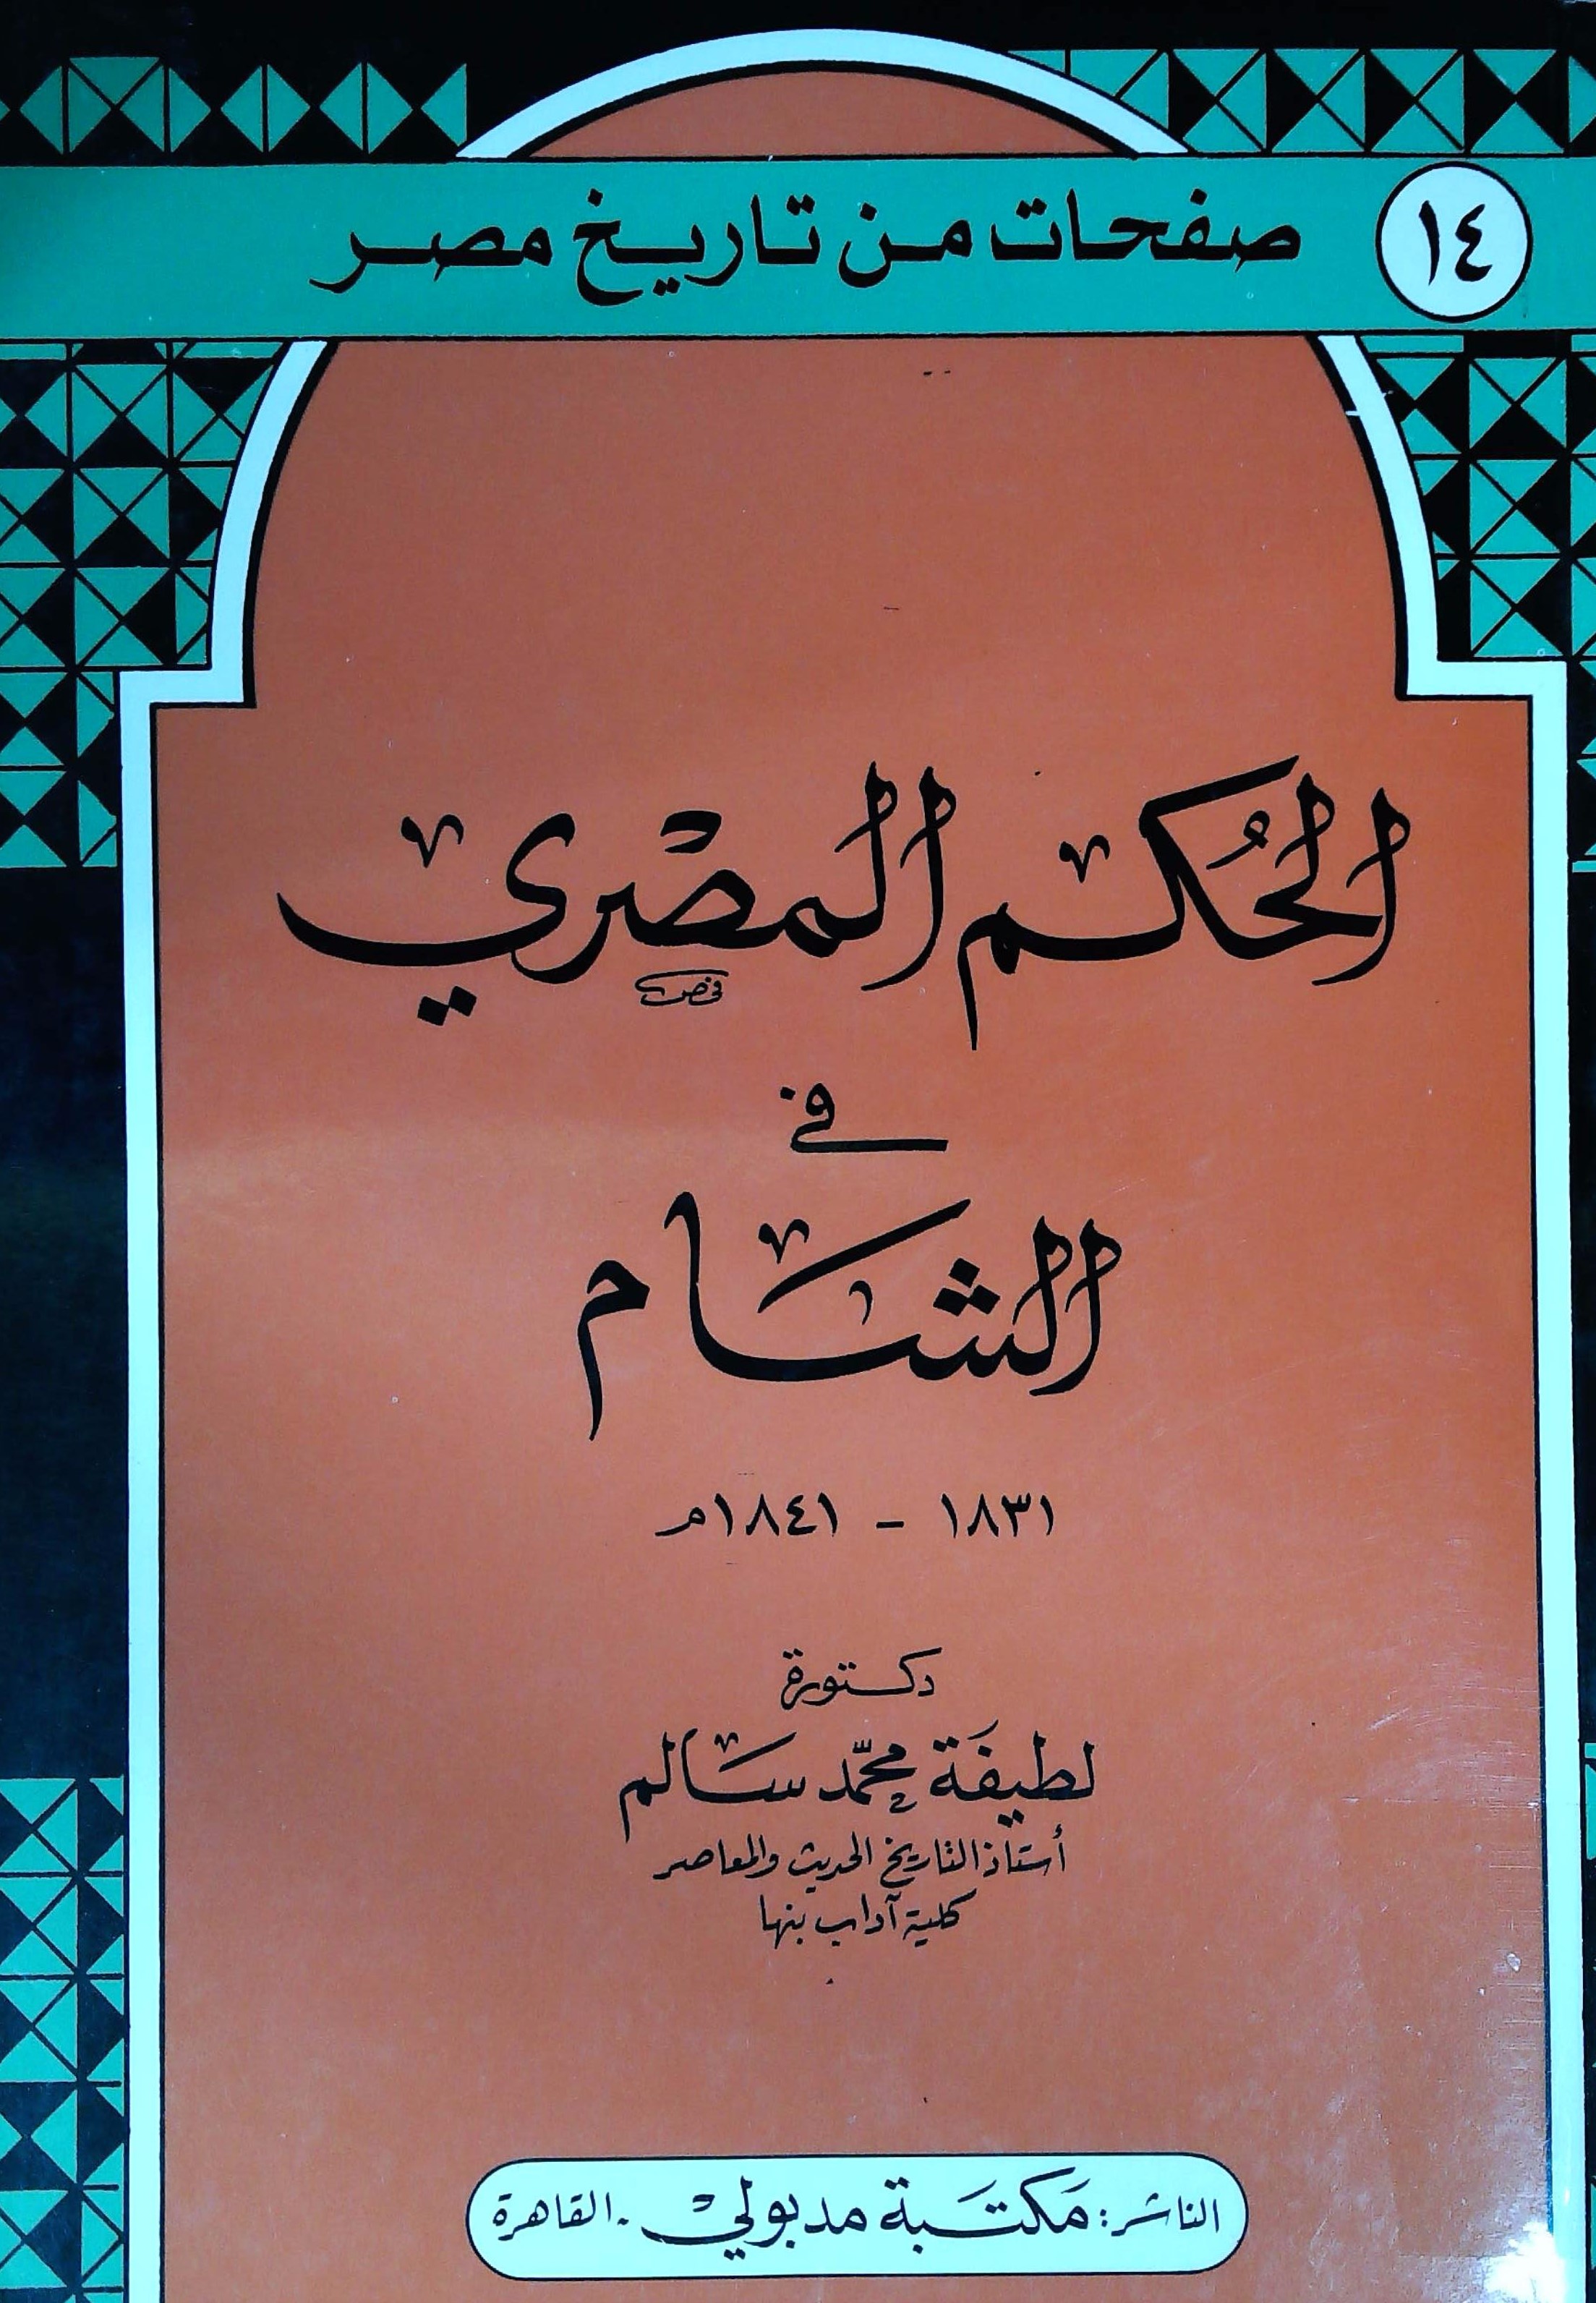 ١٤ صفحات من تاريخ مصر
الحُكم المصْري
في
الشام
١٨٣١ - ١٨٤١م
دكتورة
لطيفَة محمّد سَالم
أستاذ التاريخ الحديث والمعاصر
كلية آداب بنها
الناشر: مَكتَبة مدبولي - القاهرة